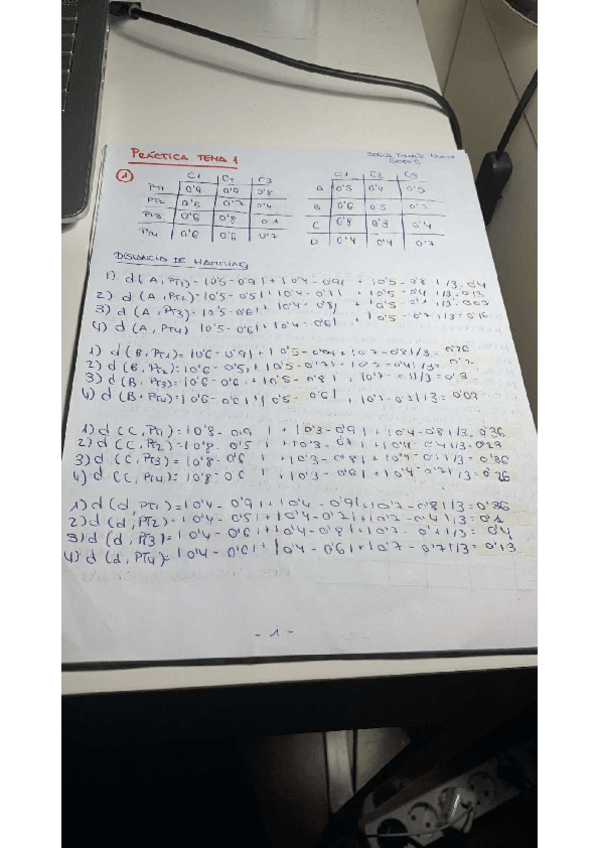 PRÁCTICA TEMA 1
1
C1 C2 C3
PT1 0'9 0'9 0'8
PT2 0'5 0'4
PT3 0'6 0'8 0'1
PT4 0'6 0'6 0'7
C1 C2 C3
A 0'5 0'4 0'5
B 0'6 0'5
C 0'8 0'3 0'4
D 0'4 0'4 0'7
DISTANCIA DE HAMMING
1) d (A, PT1)= |0'5 - 0'9| + |0'4 - 0'9| + |0'5 - 0'8 | /3 = 0'4
2) d (A, PT2)= |0'5 - 0'5| + |0'4 + |0'5 - 0'4 |/3 = 0'13
3) d (A, PT3)= |0'5 - 0'6| + |0'4 - 0'8| + |0'5 /3 =
4) d (A, PT4) |0'5 - 0'6| + |0'4 - 0'6| + |0'5 - 0'7 |/3 = 0'16
1) d (B, PT1)= |0'6 - 0'9| + |0'5 - 0'9| + - 0'8|/3 =
2) d (B, PT2)= |0'6 - 0'5| + |0'5 - - 0'4|/3 = 0'2
3) d (B, PT3)= |0'6 - 0'6| + |0'5 - 0'8| /3 = 0'3
4) d (B, PT4)= |0'6 - 0'6| + |0'5 - 0'6| /3 = 0'03
1) d (C, PT1)= |0'8 - 0'9 | + |0'3 - 0'9| + |0'4 - 0'8|/3 = 0'36
2) d (C, PT2)= |0'8 - 0'5 | + |0'3 - 0'7| + |0'4 - 0'4|/3 = 0'23
3) d (C, PT3)= |0'8 - 0'6 | + |0'3 - 0'8| + |0'4 - 0'1|/3 = 0'36
4) d (C, PT4)= |0'8 - 0'6 | + |0'3 - 0'6| + |0'4 - 0'7|/3 = 0'26
1) d (d, PT1)= |0'4 - 0'9| + |0'4 - 0'9| + - 0'8|/3 = 0'36
2) d (d, PT2)= |0'4 - 0'5| + |0'4 - - 0'4 |/3 =
3) d (d, PT3)= |0'4 - 0'6| + |0'4 - 0'8| + - 0'1|/3 = 0'4
4) d (d, PT4)= |0'4 - 0'6| + |0'4 - 0'6| + |0'7 - 0'7|/3 = 0'13
- 1 -